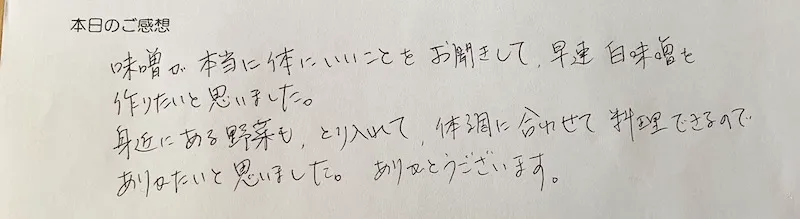 本日のご感想
味噌が本当に体にいいことをお聞きして、早速白味噌を
作りたいと思いました。
身近にある野菜も、とり入れて、体調に合わせて料理できるので
ありがたいと思いました。ありがとうございます。